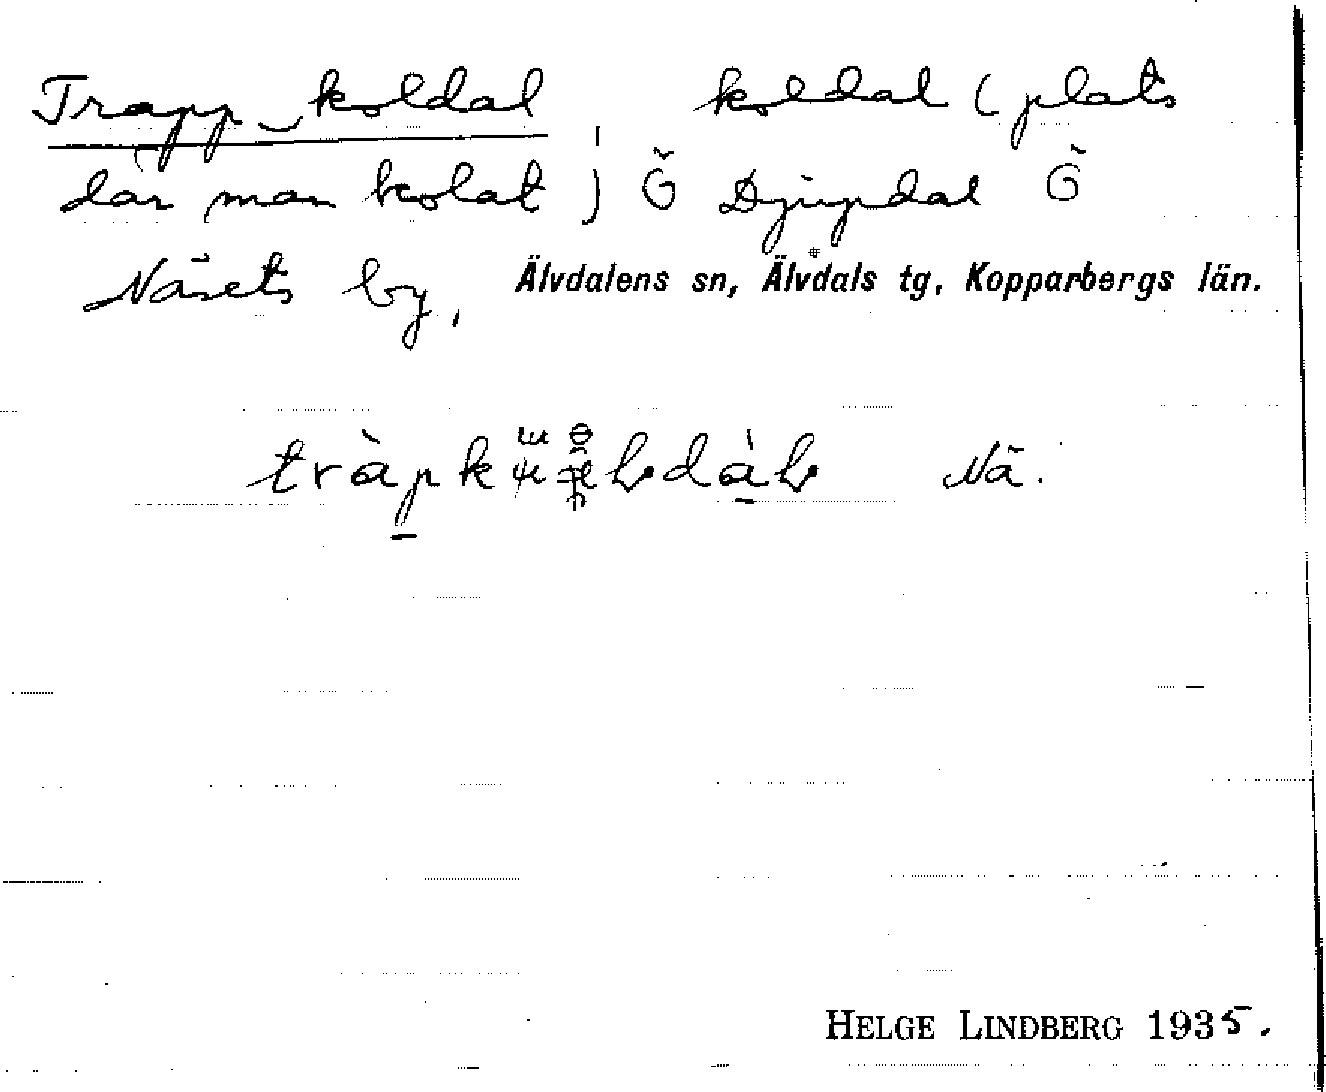 Trapp‿koldal koldal (plats
där man kolat) Ö Djupdal Ö
Näsets by, Älvdalens sn, Älvdals tg, Kopparbergs län.
Nä.
HELGE LINDBERG 1935.